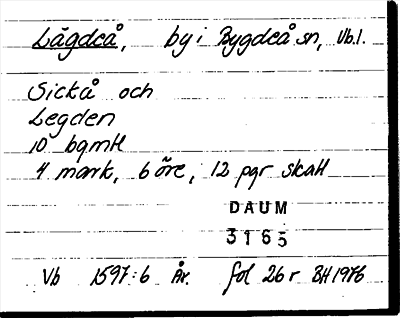 Lägdeå, by i Bygdeå sn, Vb.l.
Sickå och
Legden
10 bqmtl
4 mark, 6 öre, 12 pgr skatt
DAUM
3165
Vb 1597:6 År. fol 26 r BH 1976